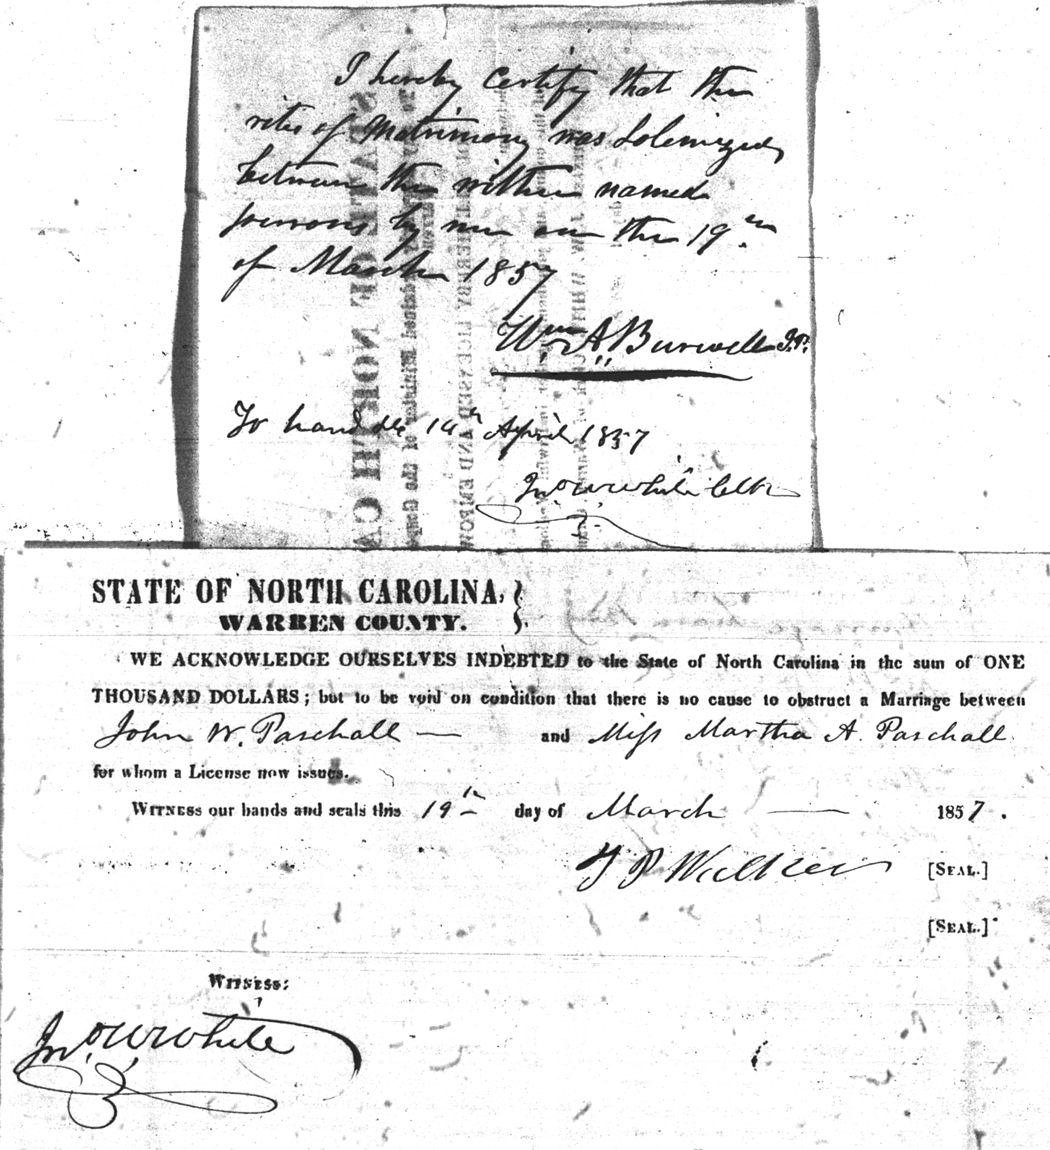 I hereby certify that the
rites of Matrimony was Solemized
between the within named
persons by me on the 19th
of March 1857
Wm A. Burwell J.P.
To hand 14th April 1857
Jno W White Clk
STATE OF NORTH CAROLINA,
WARREN COUNTY.
WE ACKNOWLEDGE OURSELVES INDEBTED to the State of North Carolina in the sum of ONE
THOUSAND DOLLARS; but to be void on condition that there is no cause to obstruct a Marriage between
John W. Paschall — and Miss Martha A. Paschall
for whom a License now issues.
WITNESS our hands and seals this 19th day of March — 1857.
P Walker [SEAL.]
[SEAL.]
WITNESS:
Jno W White